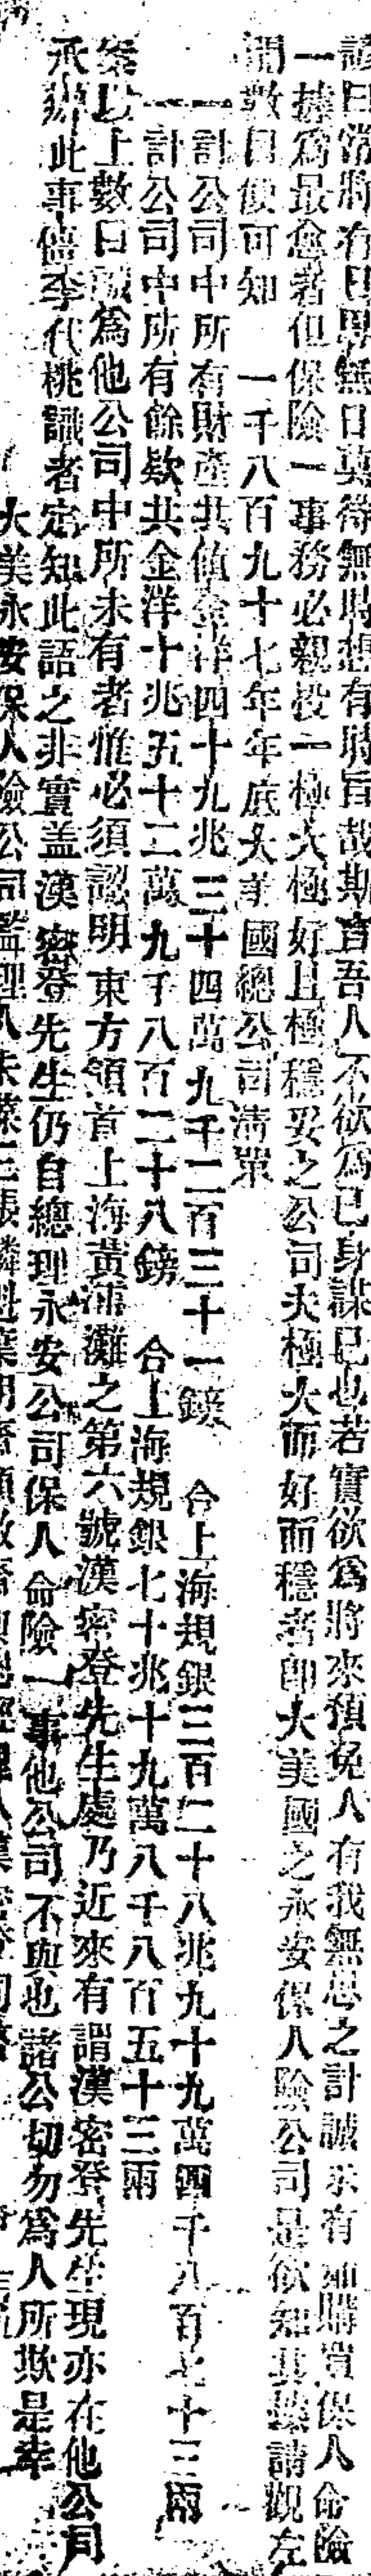 諺曰常將有日思無日莫待無時想有時旨哉斯言吾人不欲爲己身謀已也若實欲爲將來預免人有我無思之計誠未有如購買保人命險
一據爲最愈者但保險一事務必親投一極大極好且極穩妥之公司夫極大而好而穩者即大美國之永安保人險公司是欲知其據請觀左
開數目便可知 一千八百九十七年年底大美國總公司清單
一計公司中所有財產共値金洋四十九兆三十四萬九千二百三十一鎊 合上海規銀三百二十八兆九十九萬四千八百七十三兩
一計公司中所有餘欵共金洋十兆五十二萬九千八百二十八鎊 合上海規銀七十兆十九萬八千八百五十三兩
案以上數目誠爲他公司中所未有者惟必須認明東方領首上海黃浦灘之第六號漢密登先生處乃近來有謂漢密登先生現亦在他公司
承辦此事僖李代桃識者定知此語之非實盖漢密登先生仍自總理永安公司保人命險一事他公司不與也諸公切勿爲人所欺是幸
大美永安保人險公司監理人